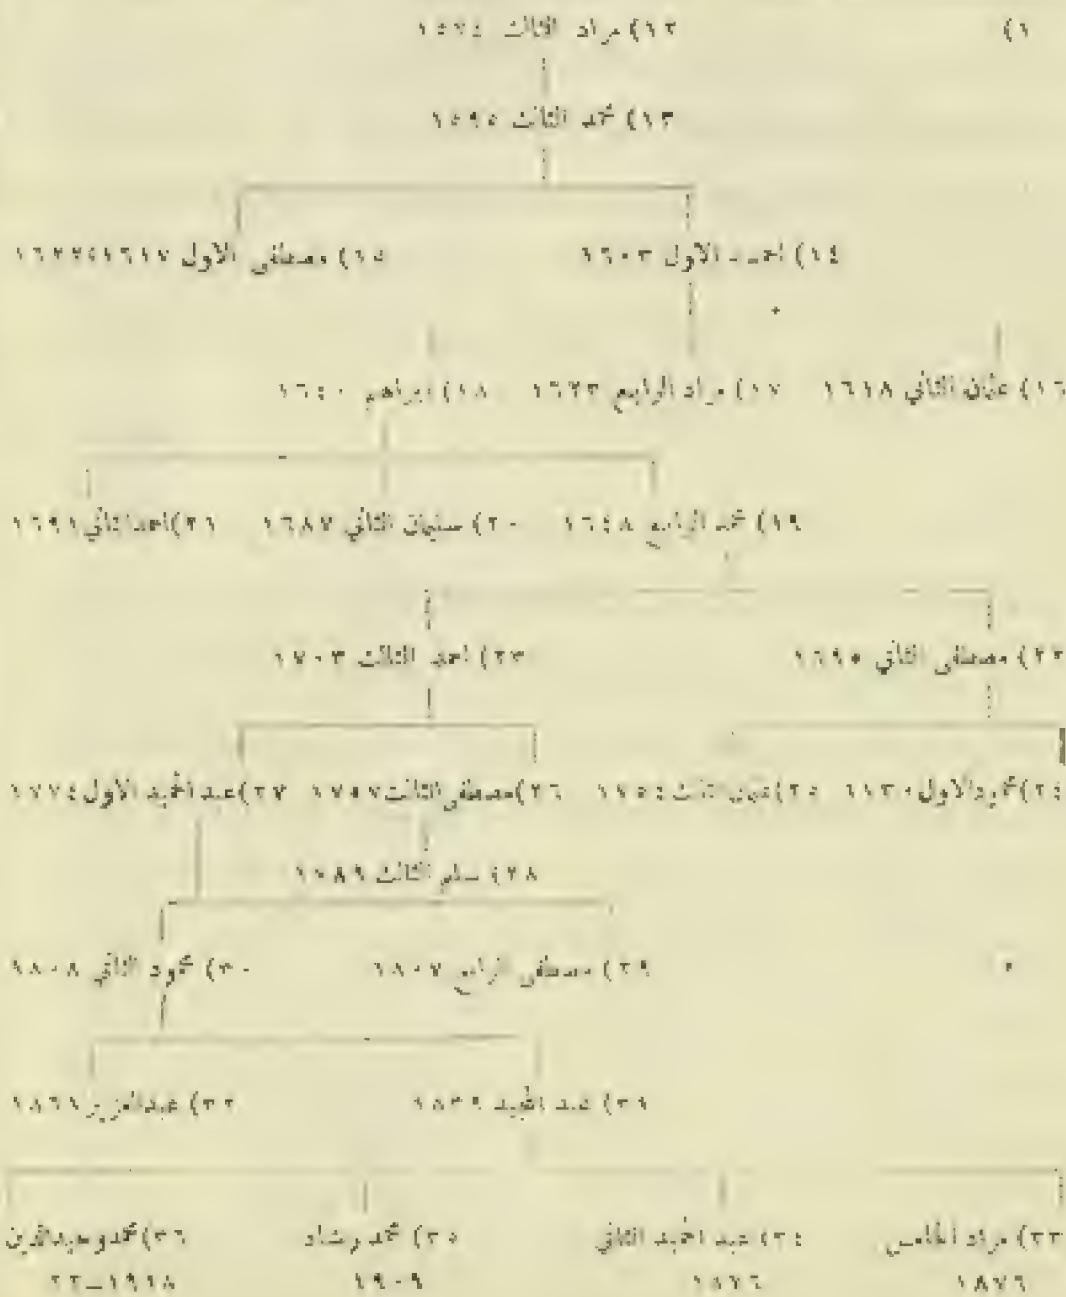 ١٢) مراد الثالث ١٥٧٤
١٣) محمد الثالث ١٥٩٥
١٤) احمد الاول ١٦٠٣ ١٥) مصطفى الاول ١٦١٧ـ١٦٢٢
١٦) عثمان الثاني ١٦١٨ ١٧) مراد الرابع ١٦٢٣ ١٨) ابراهيم ١٦٤٠
١٩) محمد الرابع ١٦٤٨ ٢٠) سليمان الثاني ١٦٨٧ ٢١) احمد الثاني ١٦٩١
٢٢) مصطفى الثاني ١٦٩٥ ٢٣) احمد الثالث ١٧٠٣
٢٤) محمود الاول ١٧٣٠ ٢٥) عثمان الثالث ١٧٥٤ ٢٦) مصطفى الثالث ١٧٥٧ ٢٧) عبد الحميد الاول ١٧٧٤
٢٨) سليم الثالث ١٧٨٩
٢٩) مصطفى الرابع ١٨٠٧ ٣٠) محمود الثاني ١٨٠٨
٣١) عبد المجيد ١٨٣٩ ٣٢) عبدالعزيز ١٨٦١
٣٣) مراد الخامس ٣٤) عبد الحميد الثاني ٣٥) محمد رشاد ٣٦) محمد وحيدالدين
١٨٧٦ ١٨٧٦ ١٩٠٩ ١٩١٨ـ٢٢